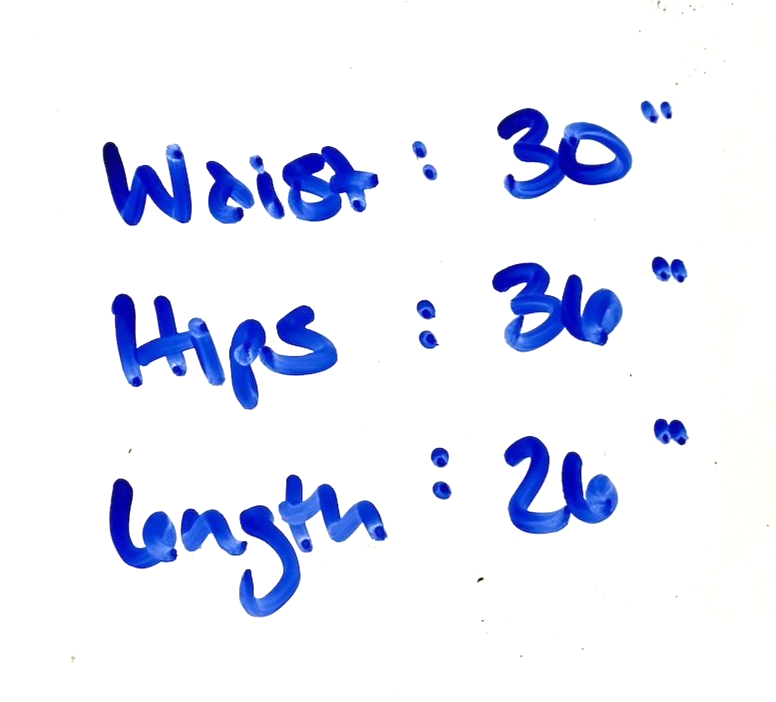 Waist : 30"
Hips : 36"
Length : 26"